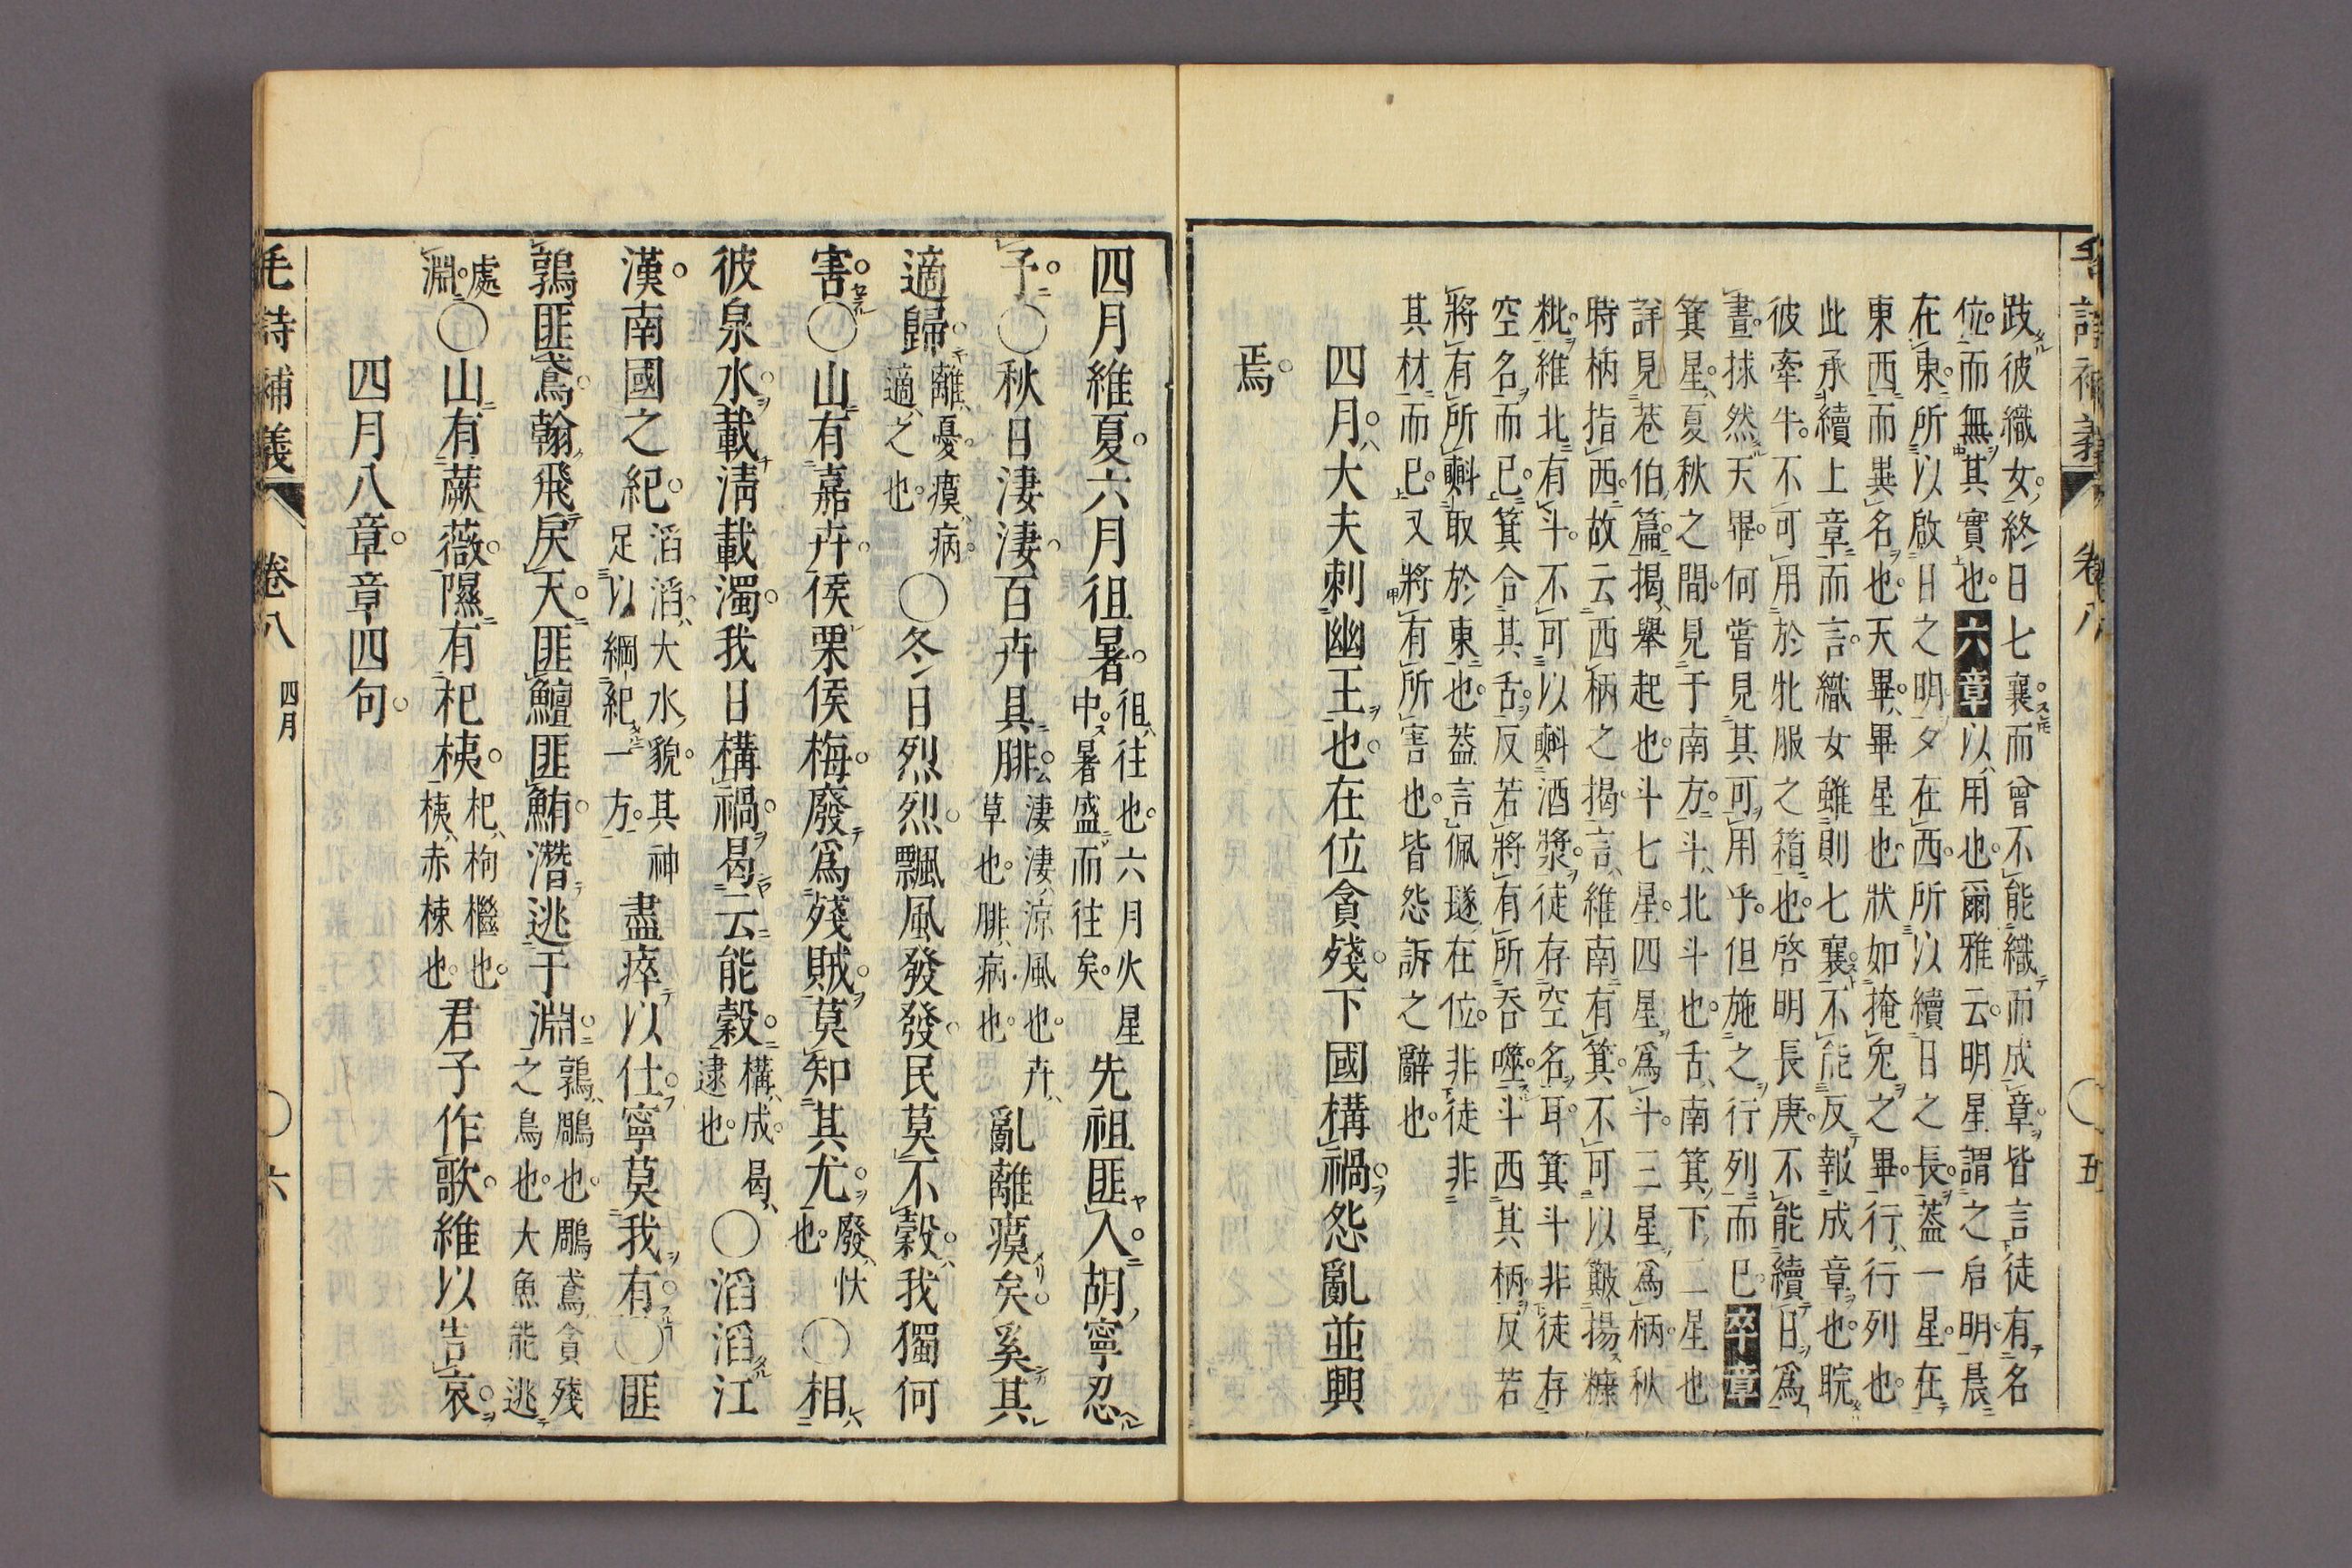 毛詩補義 卷八 〇五
跂彼織女終日七襄而曾不能織而成章皆言徒有名
位而無其實也六章以用也爾雅云明星謂之启明晨
在東所以啟日之明夕在西所以續日之長蓋一星在
東西而異名也天畢畢星也狀如掩兔之畢行行列也
此承續上章而言織女雖則七襄不能反報成章也睆
彼牽牛不可用於牝服之箱也啓明長庚不能續日爲
晝捄然天畢何嘗見其可用乎但施之行列而已卒章
箕星夏秋之間見于南方斗北斗也舌南箕下二星也
詳見巷伯篇揭舉起也斗七星四星爲斗三星爲柄秋
時柄指西故云西柄之揭言維南有箕不可以簸揚糠
粃維北有斗不可以㪺酒漿徒存空名耳箕斗非徒存
空名而已箕合其舌反若將有所吞噬斗西其柄反若
將有所㪺取於東也蓋言佩璲在位非徒非
其材而已又將有所害也皆怨訴之辭也
四月大夫刺幽王也在位貪殘下國構禍怨亂並興
焉
四月維夏六月徂暑徂往也六月火星中暑盛而往矣先祖匪人胡寧忍
予〇秋日淒淒百卉具腓淒淒涼風也卉草也腓病也亂離瘼矣奚其
適歸離憂瘼病適之也〇冬日烈烈飄風發發民莫不穀我獨何
害〇山有嘉卉侯栗侯梅廢爲殘賊莫知其尤廢忕也〇相
彼泉水載淸載濁我日構禍曷云能穀構成曷逮也〇滔滔江
漢南國之紀滔滔大水貌其神足以綱紀一方盡瘁以仕寧莫我有〇匪
鶉匪鳶翰飛戾天匪鱣匪鮪潛逃于淵鶉鵰也鵰鳶貪殘之鳥也大魚能逃
處淵〇山有蕨薇隰有杞桋杞枸檵也桋赤楝也君子作歌維以告哀
四月八章章四句
毛詩補義 卷八 四月 〇六